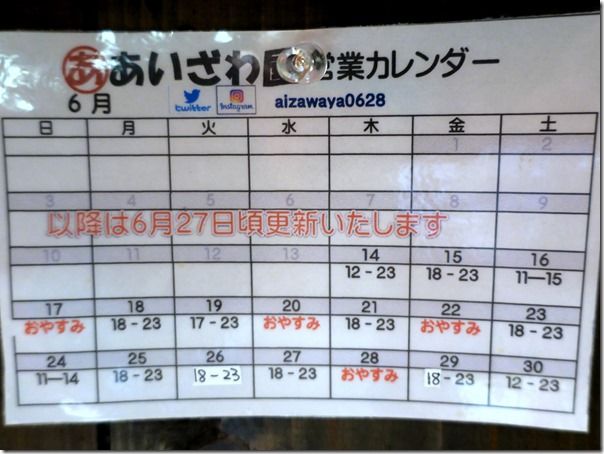 あ あいざわ 営業カレンダー
6月 twitter Instagram aizawaya0628
日 月 火 水 木 金 土
1 2
3 4 5 6 7 8 9
以降は6月27日頃更新いたします
10 11 12 13 14 15 16
12-23 18-23 11-15
17 18 19 20 21 22 23
おやすみ 18-23 17-23 おやすみ 18-23 おやすみ 18-23
24 25 26 27 28 29 30
11-14 18-23 18-23 18-23 おやすみ 18-23 12-23